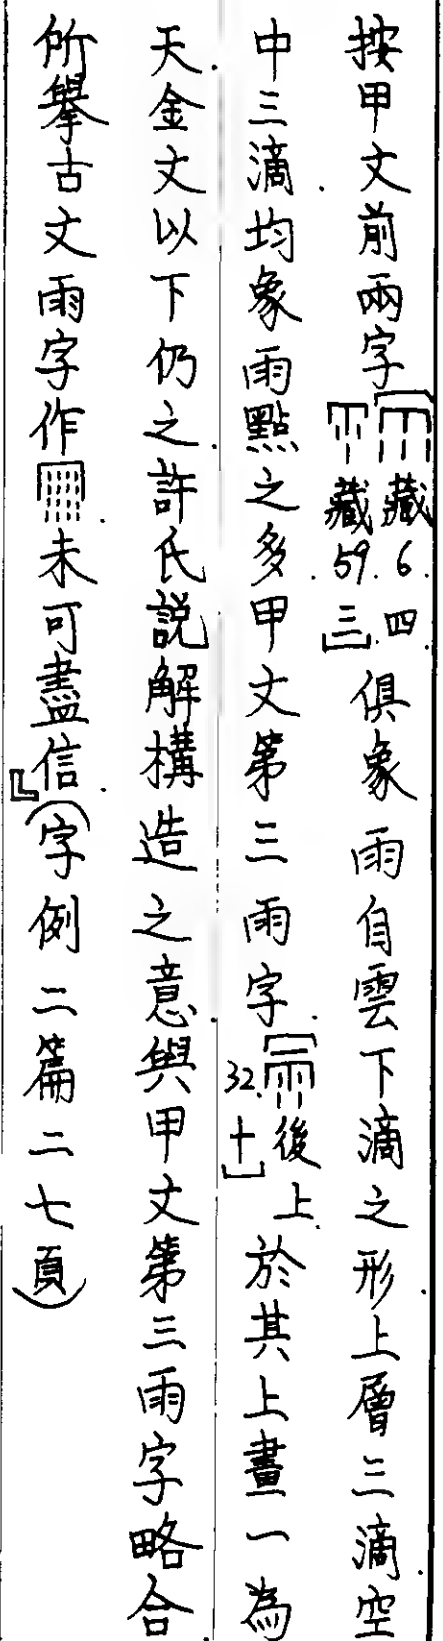 按甲文前兩字〔藏6.四 藏59.三〕俱象雨自雲下滴之形.上層三滴空
中三滴.均象雨點之多.甲文第三雨字.〔後上.32.十〕於其上畫一為
天.金文以下仍之.許氏說解構造之意.與甲文第三雨字略合.
所舉古文雨字作.未可盡信.』(字例二篇二七頁)